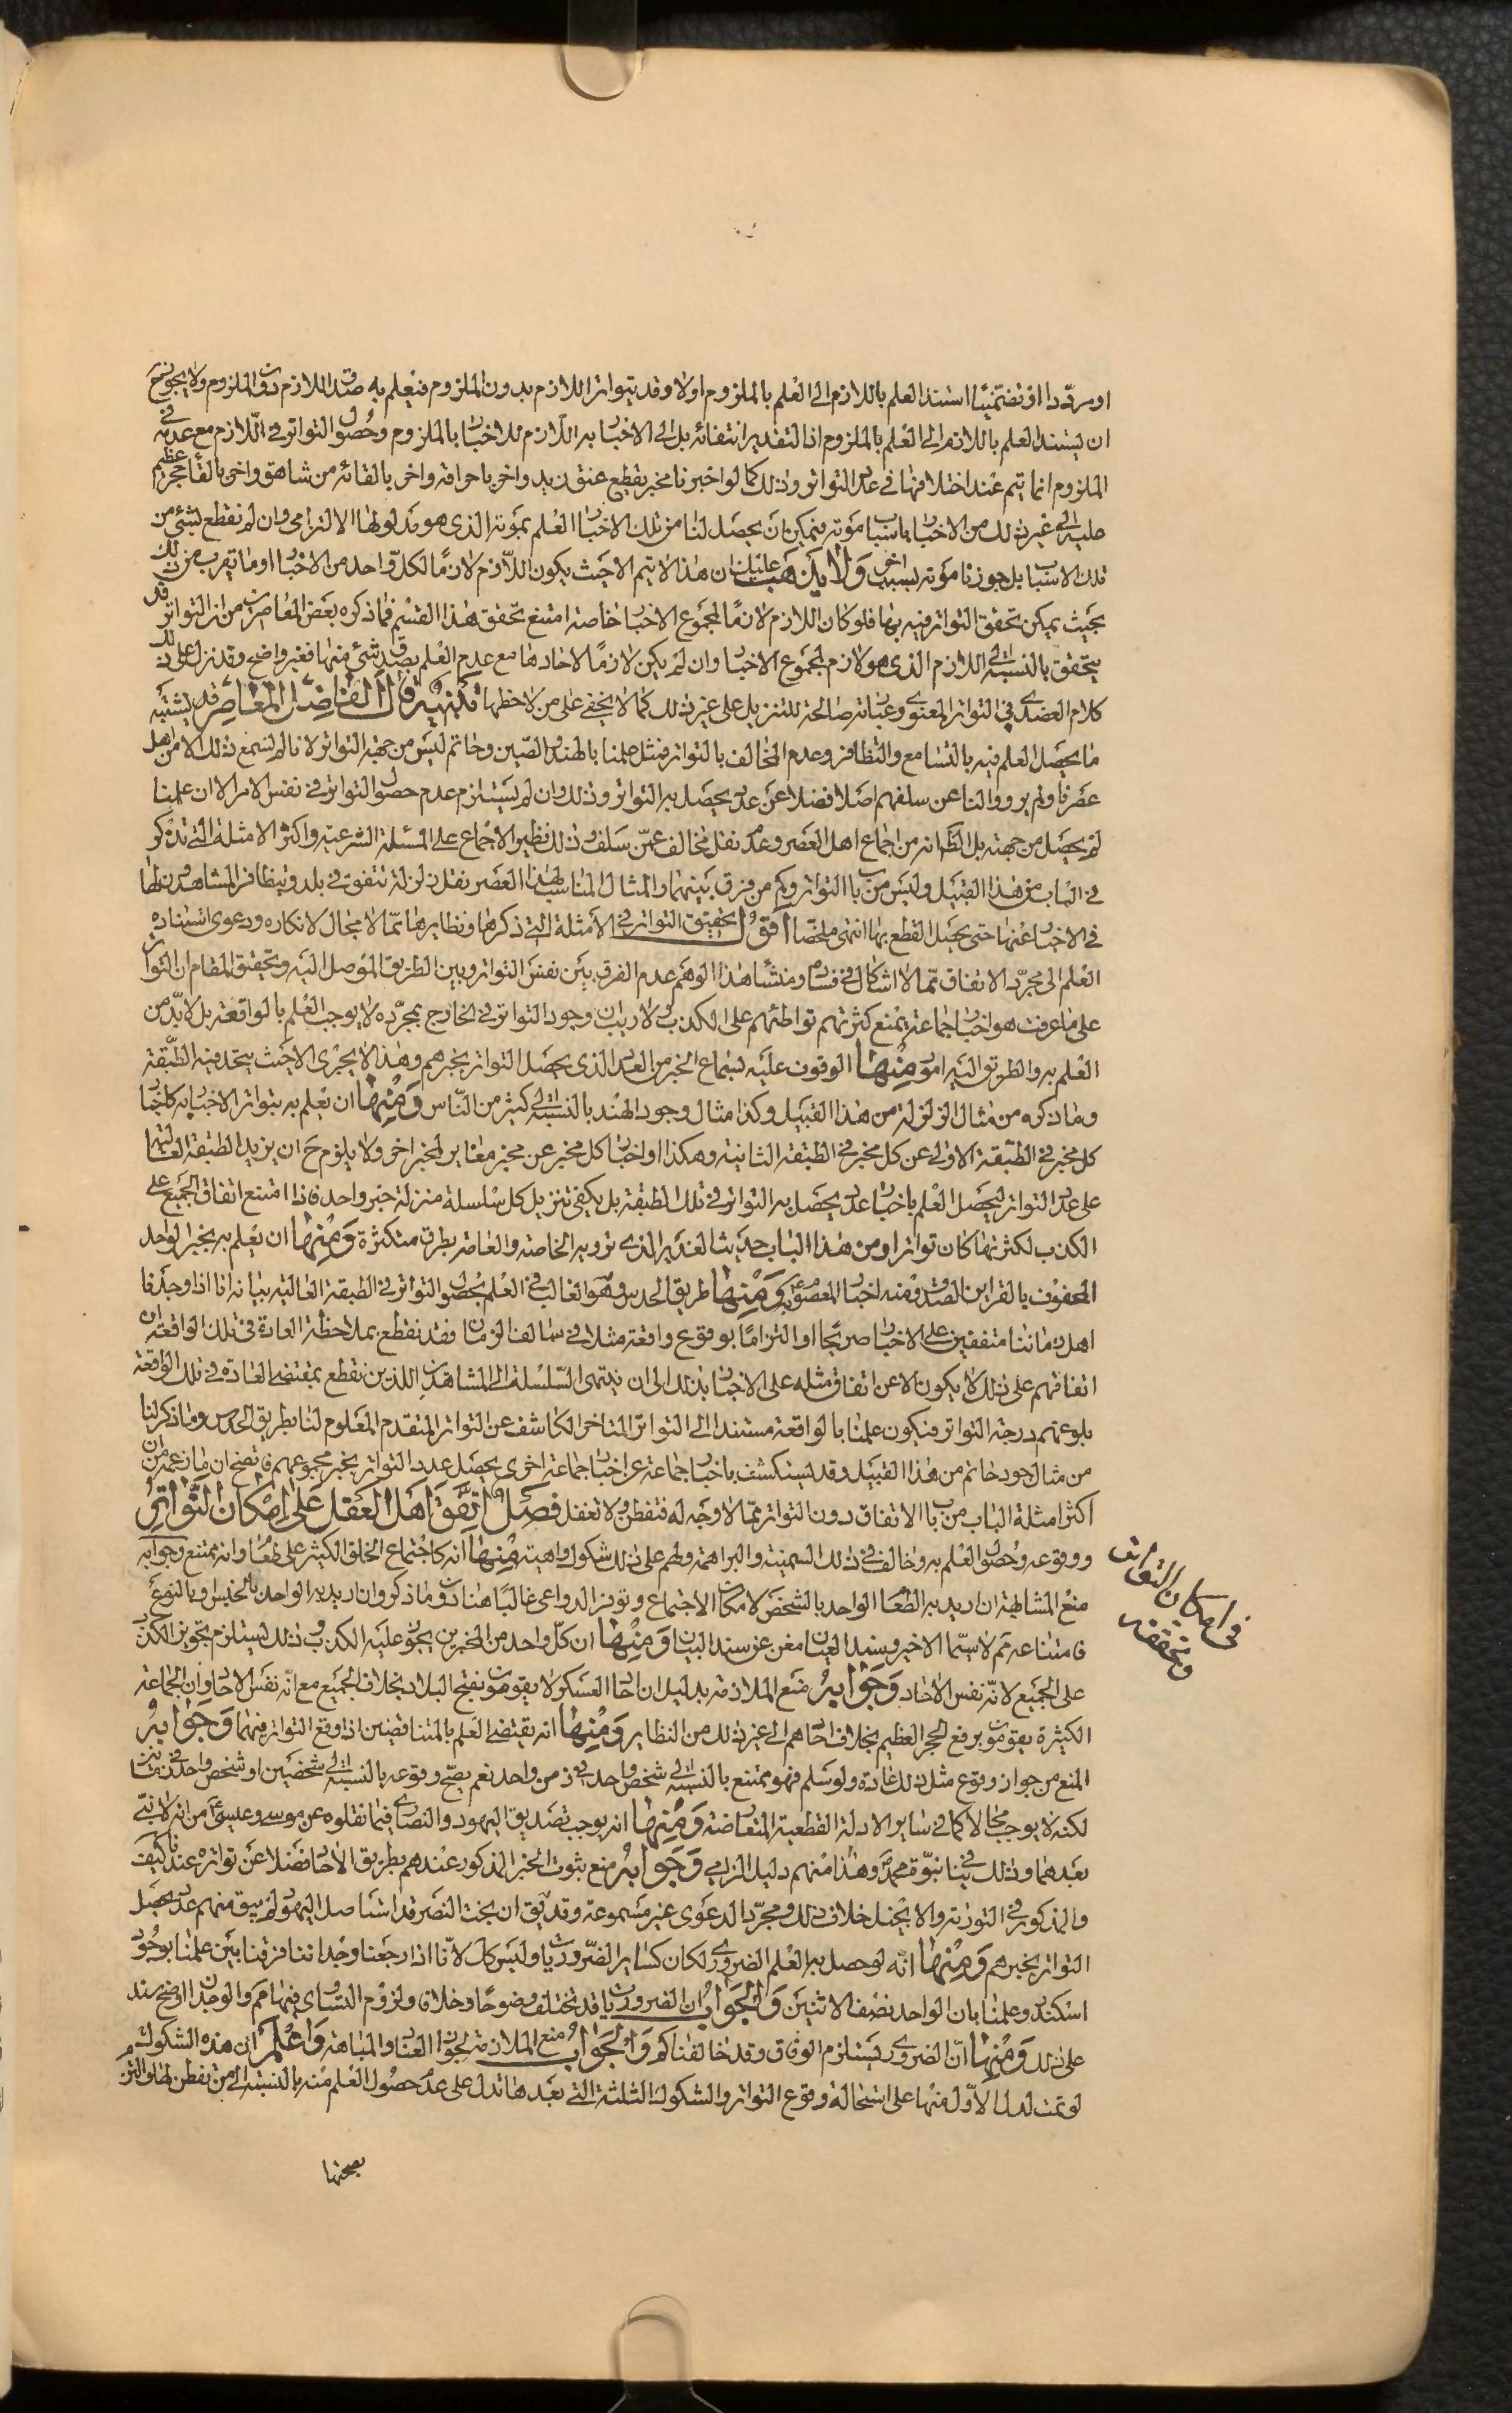 او مردّدا او تضمّنيّا استند العلم باللازم الى العلم بالملزوم اولا وقد يتواتر اللازم بدون الملزوم فيعلم به صدق اللازم دون الملزوم ولا يجوز ح
ان يستند العلم باللازم الى العلم بالملزوم اذ التقدير انتفائه بل الى الاخبار به اللازم للاخبار بالملزوم وحصول التواتر في اللازم مع عدمه في
الملزوم انما يتم عند اختلافهما في عدد التواتر وذلك كما لو اخبرنا مخبر بقطع عنق زيد واخر باحراقه واخر بالقائه من شاهق واخر بالقاء حجر عظيم
عليه الى غير ذلك من الاخبار باسباب موته فيمكن ان يحصل لنا من تلك الاخبار العلم بموته الذي هو مدلولها الالتزامي وان لم نقطع بشئ من
تلك الاسباب بل جوزنا موته بسبب اخر ولا يذهب عليك ان هذا لا يتم الا حيث يكون اللازم لازما لكل واحد من الاخبار او ما يقرب من ذلك
بحيث يمكن تحقق التواتر فيه بها فلو كان اللازم لازما لمجموع الاخبار خاصة امتنع تحقق هذا القسم فما ذكره بعض المعاصرين من ان التواتر قد
يتحقق بالنسبة الى اللازم الذي هو لازم لمجموع الاخبار وان لم يكن لازما لاحادها مع عدم العلم بصدق شئ منها فغير واضح وقد نزل على ذلك
كلام العضدي في التواتر المعنوي وعبارته صالحة للتنزيل على غير ذلك كما لا يخفى على من لاحظها تنبيه قال الفاضل المعاصر قد يشتبه
ما يحصل العلم فيه بالتسامع والتظافر وعدم المخالف بالتواتر فمثل علمنا بالهند والصين وحاتم ليس من جهة التواتر لانا لم نسمع ذلك الا من اهل
عصرنا ولم يرووا لنا عن سلفهم اصلا فضلا عن عدد يحصل به التواتر وذلك وان لم يستلزم عدم حصول التواتر في نفس الامر الا ان علمنا
لم يحصل من جهته بل الظاهر انه من اجماع اهل العصر وعدم نقل مخالف عمّن سلف وذلك نظير الاجماع على المسئلة الشرعية واكثر الامثلة التي تذكر
في الباب من هذا القبيل وليس من باب التواتر وكم من فرق بينهما والمثال المناسب لهذا العصر نقل زلزلة تتفق في بلد ويتظافر المشاهدون لها
في الاخبار عنها حتى يحصل القطع بها انتهى ملخصا اقول تحقيق التواتر في الامثلة التي ذكرها ونظايرها ممّا لا مجال لانكاره ودعوى استناده
العلم الى مجرّد الاتفاق ممّا لا اشكال في فساده ومنشأ هذا الوهم عدم الفرق بين نفس التواتر وبين الطريق الموصل اليه وتحقيق المقام ان التواتر
على ما عرفت هو اخبار جماعة يمنع كثرتهم تواطئهم على الكذب ولا ريب ان وجود التواتر في الخارج بمجرّده لا يوجب العلم بالواقعة بل لا بدّ من
العلم به والطريق اليه امور منها الوقوف عليه بسماع الخبر من العدد الذي يحصل التواتر بخبرهم وهذا لا يجري الا حيث يتحد فيه الطبقة
وما ذكره من مثال الزلزلة من هذا القبيل وكذا مثال وجود الهند بالنسبة الى كثير من النّاس ومنها ان يعلم به بتواتر الاخبار به كاخبار
كل مخبر في الطبقة الاولى عن كل مخبر في الطبقة الثانية وهكذا او اخبار كل مخبر عن مخبر مغاير لمخبر اخر ولا يلزم ح ان يزيد الطبقة العالية
على عدد التواتر ليحصل العلم باخبار عدد يحصل به التواتر في تلك الطبقة بل يكفي تنزيل كل سلسلة منزلة خبر واحد فاذا امتنع اتفاق الجميع على
الكذب لكثرتها كان تواترا ومن هذا الباب حديث الغدير الذي ترويه الخاصة والعامة بطرق متكثرة ومنها ان يعلم به بخبر الواحد
المحفوف بالقراين الصدق ومنه اخبار المعصوم به ومنها طريق الحدس وهو الغالب في العلم بحصول التواتر في الطبقة العالية بيانه انا اذا وجدنا
اهل زماننا متفقين على الاخبار صريحا او التزاما بوقوع واقعة مثلا في سالف الزمان فقد نقطع بملاحظة العادة في تلك الواقعة ان
اتفاقهم على ذلك لا يكون الا عن اتفاق مثله على الاخبار بذلك الى ان ينتهى السّلسلة الى المشاهدين الذين نقطع بمقتضى العادة في تلك الواقعة
بلوغهم درجة التواتر فيكون علمنا بالواقعة مستندا الى التواتر المتاخر الكاشف عن التواتر المتقدم المعلوم لنا بطريق الحدس وما ذكرنا
من مثال جود حاتم من هذا القبيل وقد يستكشف باخبار جماعة عن اخبار جماعة اخرى يحصل عدد التواتر بخبر مجموعهم فاتضح ان ما زعمه من ان
اكثر امثلة الباب من باب الاتفاق دون التواتر ممّا لا وجه له فتفطن ولا تغفل فصل اتفق اهل العقل على امكان التواتر
ووقوعه وحصول العلم به وخالف في ذلك السمنية والبراهمة ولهم على ذلك شكوك واهية منها انه كاجتماع الخلق الكثير على طعام وانه ممتنع وجوابه
منع المشابهة ان اريد به الطعام الواحد بالشخص لامكان الاجتماع وتوفر الدواعي غالبا هنا دون ما ذكر وان اريد به الواحد بالجنس او بالنوع
فامتناعه مم لا سيّما الاخير وسند العيان مغن عن سند البيان ومنها ان كلّ واحد من المخبرين يجوز عليه الكذب وذلك يستلزم تجويز الكذب
على الجميع لانّه نفس الاحاد وجوابه منع الملازمة بدليل ان احاد العسكر لا يقومون بفتح البلاد بخلاف الجميع مع انّه نفس الاحاد وان الجماعة
الكثيرة يقومون برفع الحجر العظيم بخلاف احادهم الى غير ذلك من النظاير ومنها انه يقتضى العلم بالمتناقضين اذا وقع التواتر فيهما وجوابه
المنع من جواز وقوع مثل ذلك عادة ولو سلم فهو ممتنع بالنسبة الى شخص واحد في زمن واحد نعم يصحّ وقوعه بالنسبة الى شخصين او شخص واحد في زمنين
لكنه لا يوجب محالا كما في ساير الادلة القطعية المتعارضة ومنها انه يوجب تصديق اليهود والنصارى فيما نقلوه عن موسى وعيسى من انه لا نبيّ
بعدهما وذلك ينافي نبوّة محمد وهذا منهم دليل الزامي وجوابه منع ثبوت الخبر المذكور عندهم بطريق الاحاد فضلا عن تواتره عندنا كيف
والمذكور في التورية والانجيل خلاف ذلك ومجرّد الدعوى غير مسموعة وقد يق ان بخت النصر قد استاصل اليهود فلم يبق منهم عدد يحصل
التواتر بخبرهم ومنها انّه لو حصل به العلم الضروري لكان كساير الضّروريات وليس كك لانّا اذا رجعنا وجداننا فرقنا بين علمنا بوجود
اسكندر وعلمنا بان الواحد نصف الاثنين والجواب ان الضروريات قد تختلف وضوحا وخفاء ولزوم التساوي فيها مم والوجدان اوضح سند
على ذلك ومنها انّ الضروري يستلزم الوفاق وقد خالفناكم والجواب منع الملازمة لجواز العناد والمباهتة واعلم ان هذه الشكوك
لو تمت لدل الاوّل منها على استحالة وقوع التواتر والشكوك الثلثة التي بعدها تدل على عدم حصول العلم منه بالنسبة الى من تفطن لها والتزم
بصحتها
في امكان التواتر
وتحققه